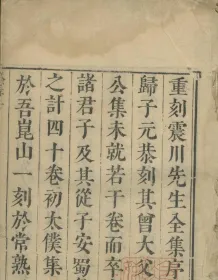 重刻震川先生全集序
歸子元恭刻其曾大父
公集未就若干卷而卒
諸君子及其從子安蜀
之計四十卷初太僕集
於吾崑山一刻於常熟